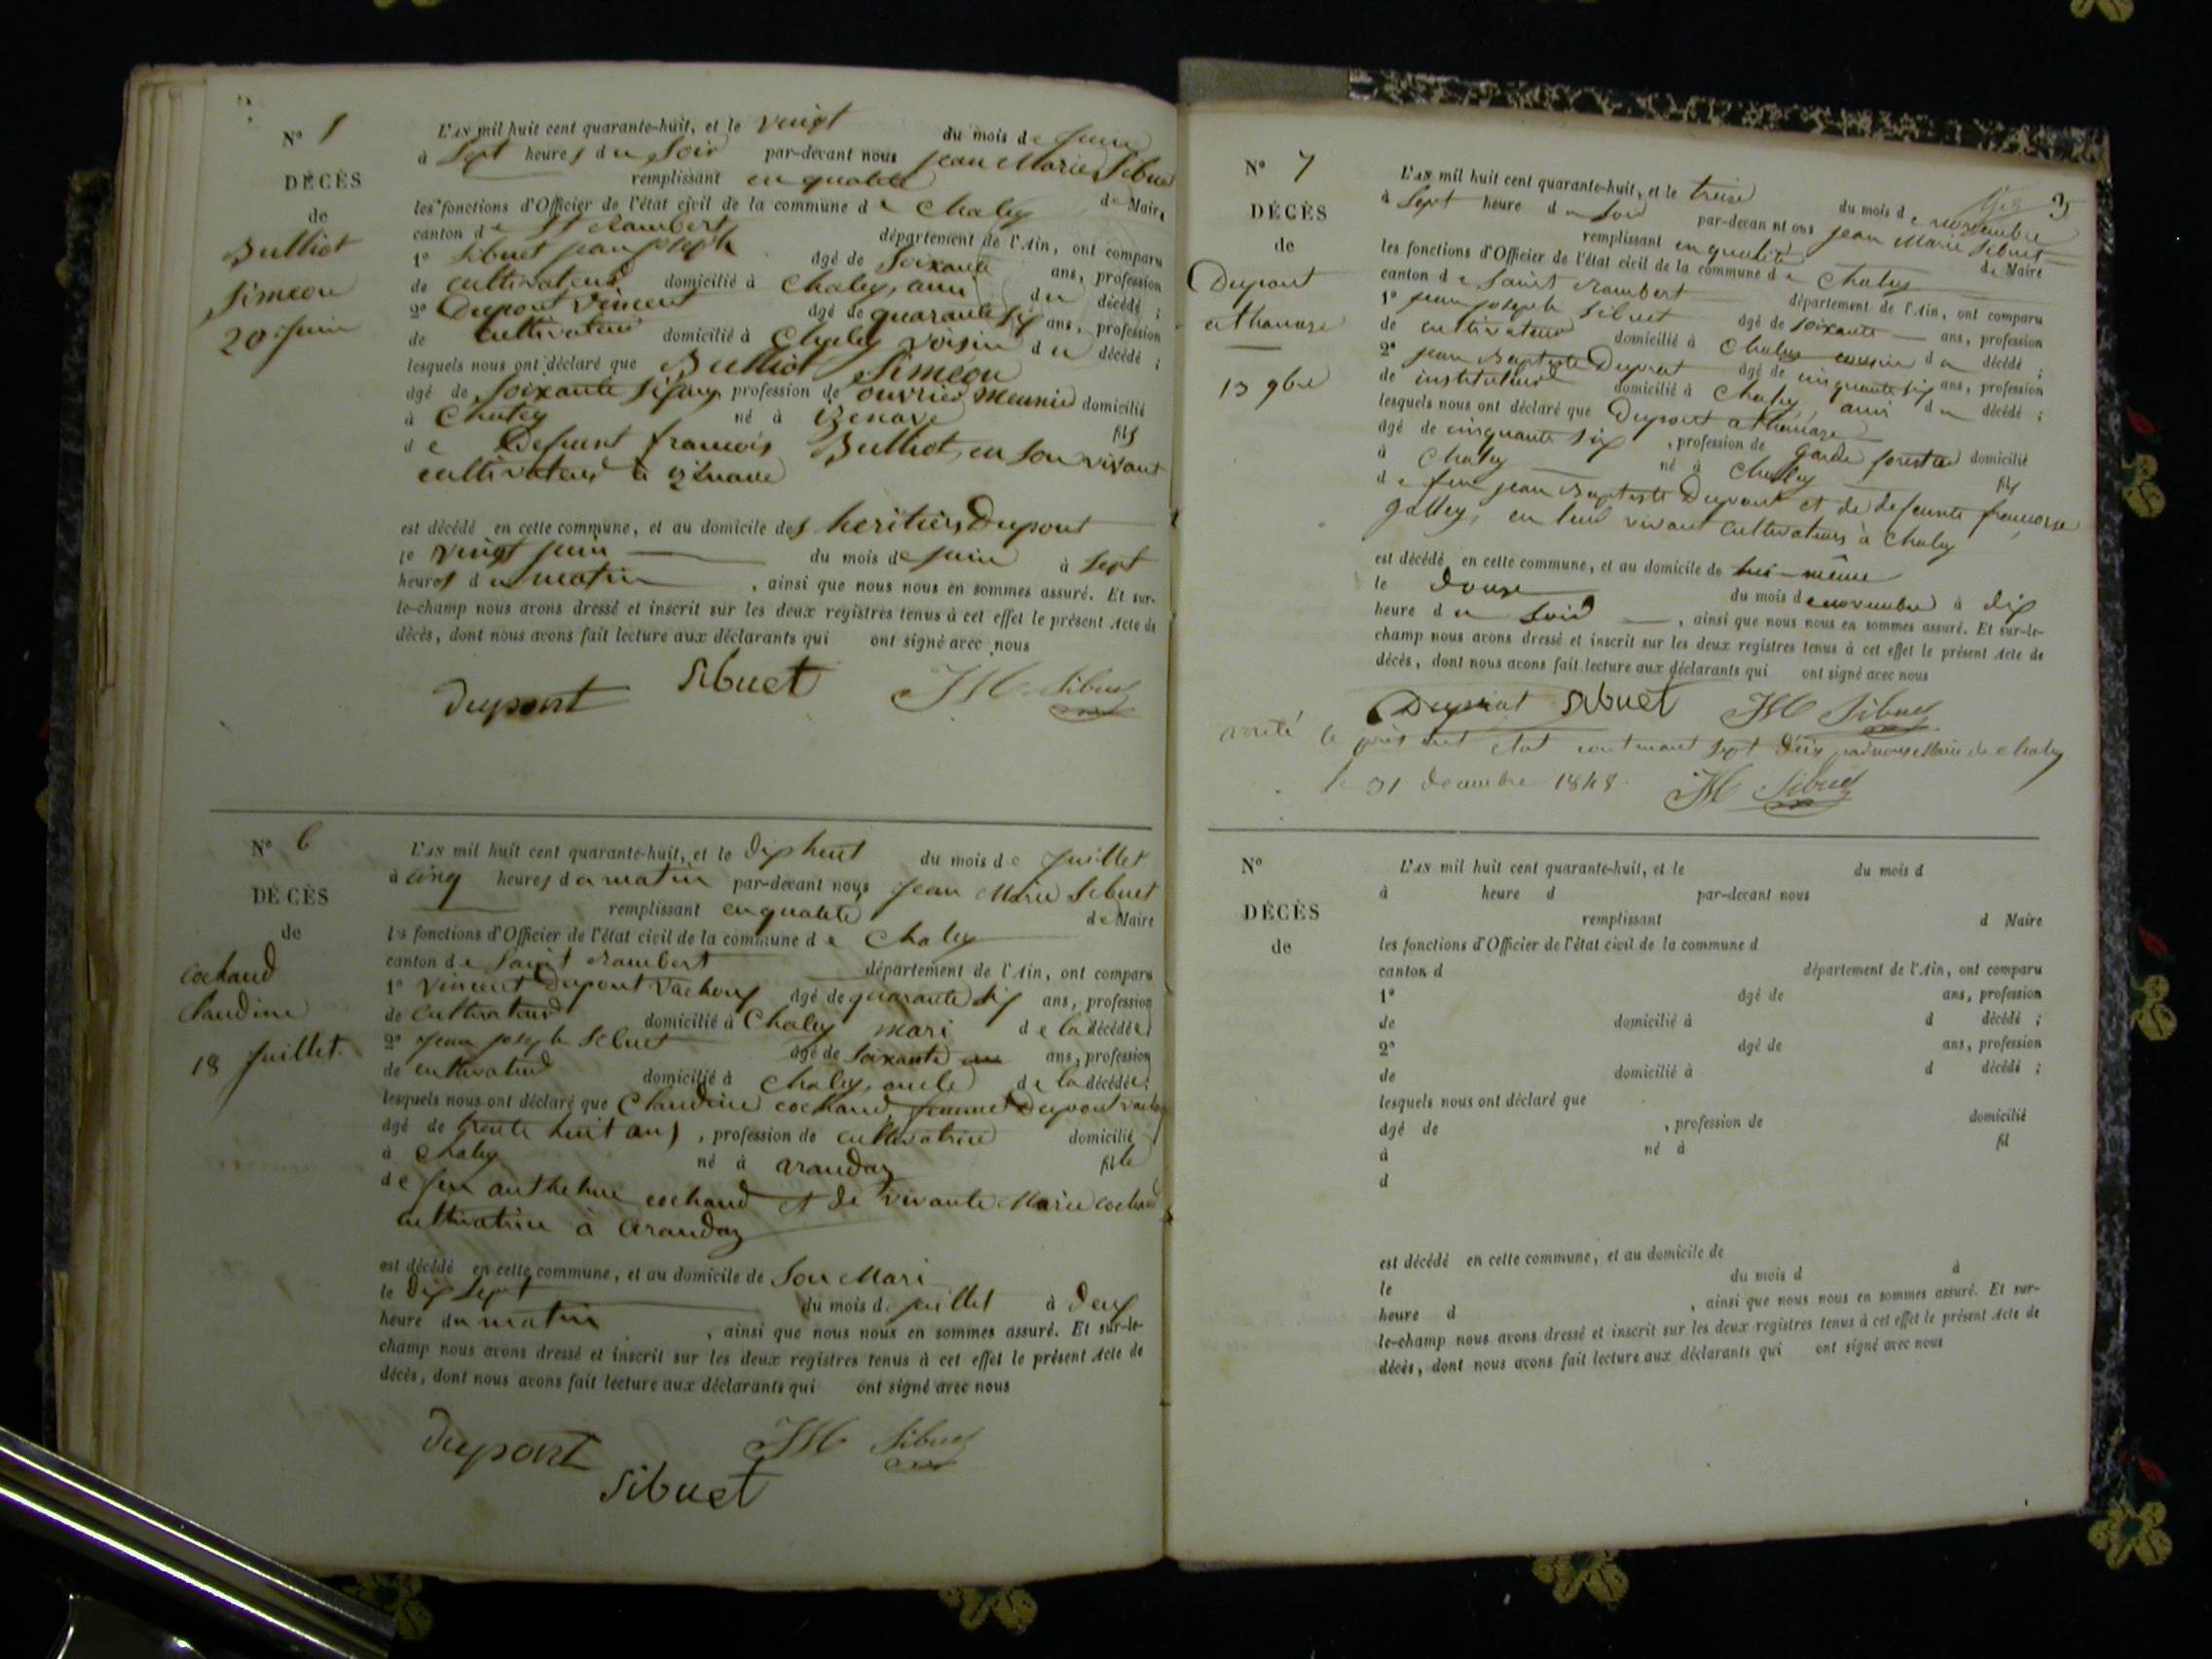 N° 5
DÉCÈS
de
Bulliot
Simeon
20 Juin
L'AN mil huit cent quarante-huit, et le vingt du mois de Juin
à Sept heures du Soir par-devant nous jean Marie Sibuet
remplissant en qualité de Maire
les fonctions d'Officier de l'état civil de la commune de Chaley
canton de St Rambert département de l'Ain, ont comparu
1° Sibuet jean joseph âgé de Soixante ans, profession
de cultivateur domicilié à Chaley, ami du décédé ;
2° Dupont Vincent âgé de quarante six ans, profession
de cultivateur domicilié à Chaley voisin du décédé ;
lesquels nous ont déclaré que Bulliot Siméon
âgé de Soixante six ans profession de ouvrier meunier domicilié
à Chaley né à Izenave fils
de Defunt françois Bulliot en son vivant
cultivateur à Izenave
est décédé en cette commune, et au domicile des heritiers Dupont
le vingt juin du mois de Juin à Sept
heures du matin, ainsi que nous nous en sommes assuré. Et sur-
le-champ nous avons dressé et inscrit sur les deux registres tenus à cet effet le présent Acte de
décès, dont nous avons fait lecture aux déclarants qui ont signé avec nous
Dupont Sibuet JM Sibuet
N° 6
DÉCÈS
de
Cochaud
Claudine
18 Juillet.
L'AN mil huit cent quarante-huit, et le dix huit du mois de Juillet
à cinq heures du matin par-devant nous Jean Marie Sibuet
remplissant en qualité de Maire
les fonctions d'Officier de l'état civil de la commune de Chaley
canton de Saint Rambert département de l'Ain, ont comparu
1° Vincent Dupont Vachoux âgé de quarante six ans, profession
de Cultivateur domicilié à Chaley mari de la décédée ;
2° Jean joseph Sibuet âgé de Soixante ans, profession
de cultivateur domicilié à Chaley, oncle de la décédée ;
lesquels nous ont déclaré que Claudine cochaud femme Dupont
âgé de trente huit ans, profession de cultivatrice domicilié
à Chaley né à arandaz fille
de feu anthelme cochaud et de vivante Marie cochaud
cultivatrice à arandaz
est décédé en cette commune, et au domicile de Son Mari
le dix Sept du mois de juillet à deux
heure du matin, ainsi que nous nous en sommes assuré. Et sur-le-
champ nous avons dressé et inscrit sur les deux registres tenus à cet effet le présent Acte de
décès, dont nous avons fait lecture aux déclarants qui ont signé avec nous
Dupont JM Sibuet
Sibuet
3
N° 7
DÉCÈS
de
Dupont
athanaze
13 9bre
L'AN mil huit cent quarante-huit, et le treize du mois de novembre
à Sept heure du Soir par-devan nt ous jean Marie Sibuet
remplissant en qualité de Maire
les fonctions d'Officier de l'état civil de la commune de Chaley
canton de Saint Rambert département de l'Ain, ont comparu
1° jean joseph Sibuet âgé de soixante ans, profession
de cultivateur domicilié à Chaley cousin du décédé ;
2° jean Baptiste Duprat âgé de cinquante six ans, profession
de instituteur domicilié à Chaley, ami du décédé ;
lesquels nous ont déclaré que Dupont athanaze
âgé de cinquante six, profession de garde forestier domicilié
à Chaley né à Chaley fils
de feu jean Baptiste Dupont et de defeunte françoise
Galley, en leur vivant cultivateurs à Chaley
est décédé en cette commune, et au domicile de lui-même
le Douze du mois de novembre à dix
heure du Soir, ainsi que nous nous en sommes assuré. Et sur-le-
champ nous avons dressé et inscrit sur les deux registres tenus à cet effet le présent Acte de
décès, dont nous avons fait lecture aux déclarants qui ont signé avec nous
Duprat Sibuet JM Sibuet
arrêté le présent état contenant sept décès par nous Maire de Chaley
le 31 decembre 1848. JM Sibuet
N°
DÉCÈS
de
L'AN mil huit cent quarante-huit, et le du mois d
à heure d par-devant nous
remplissant d Maire
les fonctions d'Officier de l'état civil de la commune d
canton d département de l'Ain, ont comparu
1° âgé de ans, profession
de domicilié à d décédé ;
2° âgé de ans, profession
de domicilié à d décédé ;
lesquels nous ont déclaré que
âgé de , profession de domicilié
à né à fil
d
est décédé en cette commune, et au domicile de
le du mois d à
heure d , ainsi que nous nous en sommes assuré. Et sur-
le-champ nous avons dressé et inscrit sur les deux registres tenus à cet effet le présent Acte de
décès, dont nous avons fait lecture aux déclarants qui ont signé avec nous